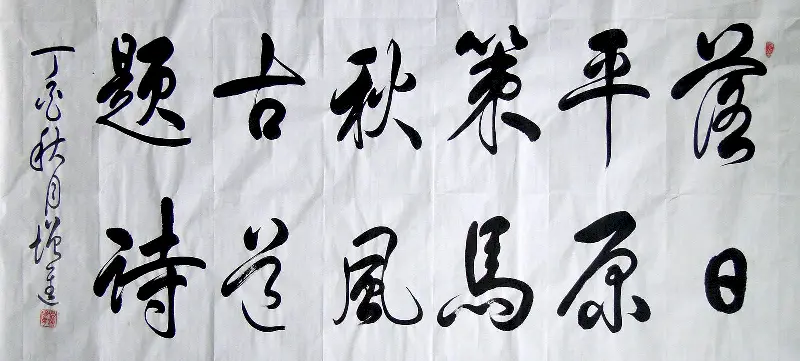 落日
平原
策馬
秋風
古道
题詩
丁亥秋月增运